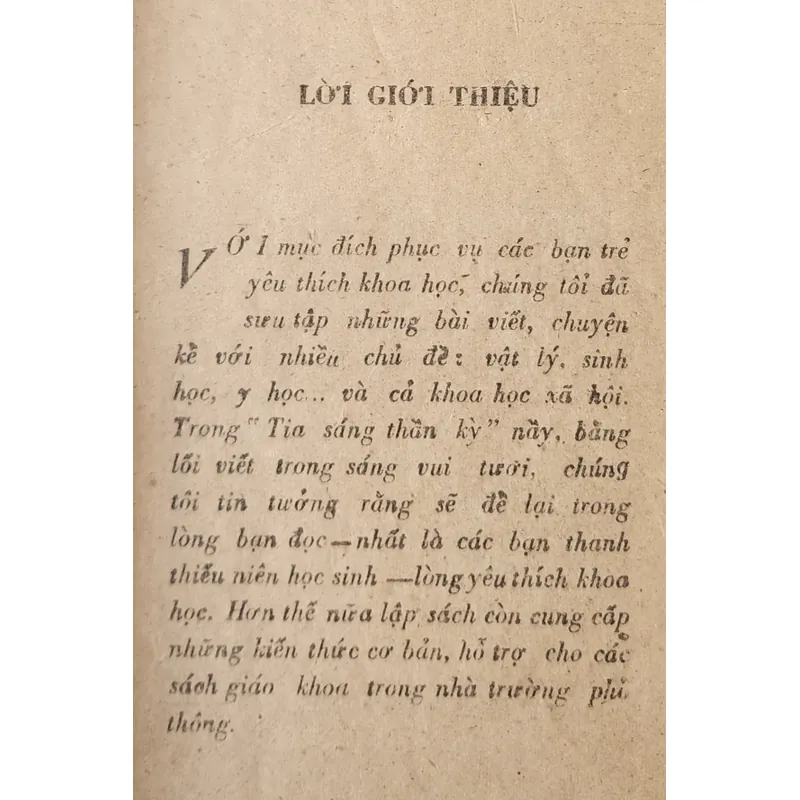 LỜI GIỚI THIỆU
VỚI mục đích phục vụ các bạn trẻ
yêu thích khoa học, chúng tôi đã
sưu tập những bài viết, chuyện
kể với nhiều chủ đề: vật lý, sinh
học, y học... và cả khoa học xã hội.
Trong "Tia sáng thần kỳ" nầy, bằng
lối viết trong sáng vui tươi, chúng
tôi tin tưởng rằng sẽ để lại trong
lòng bạn đọc — nhất là các bạn thanh
thiếu niên học sinh — lòng yêu thích khoa
học. Hơn thế nữa lập sách còn cung cấp
những kiến thức cơ bản, hỗ trợ cho các
sách giáo khoa trong nhà trường phổ
thông.